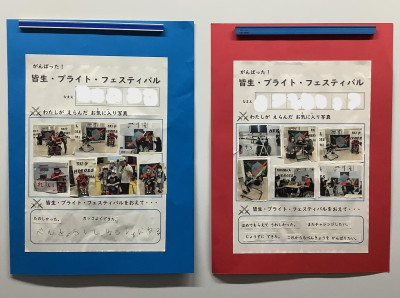 がんばった！
皆生・ブライト・フェスティバル
なまえ
わたしが えらんだ お気に入り写真
皆生・ブライト・フェスティバルをおえて・・・
たのしかった。 かっこよくできた。
がんばった！
皆生・ブライト・フェスティバル
なまえ
わたしが えらんだ お気に入り写真
皆生・ブライト・フェスティバルをおえて・・・
ほめてもらえて うれしかった。 またチャレンジしたい。
じょうずに できた。 これからもべんきょうを がんばりたい。